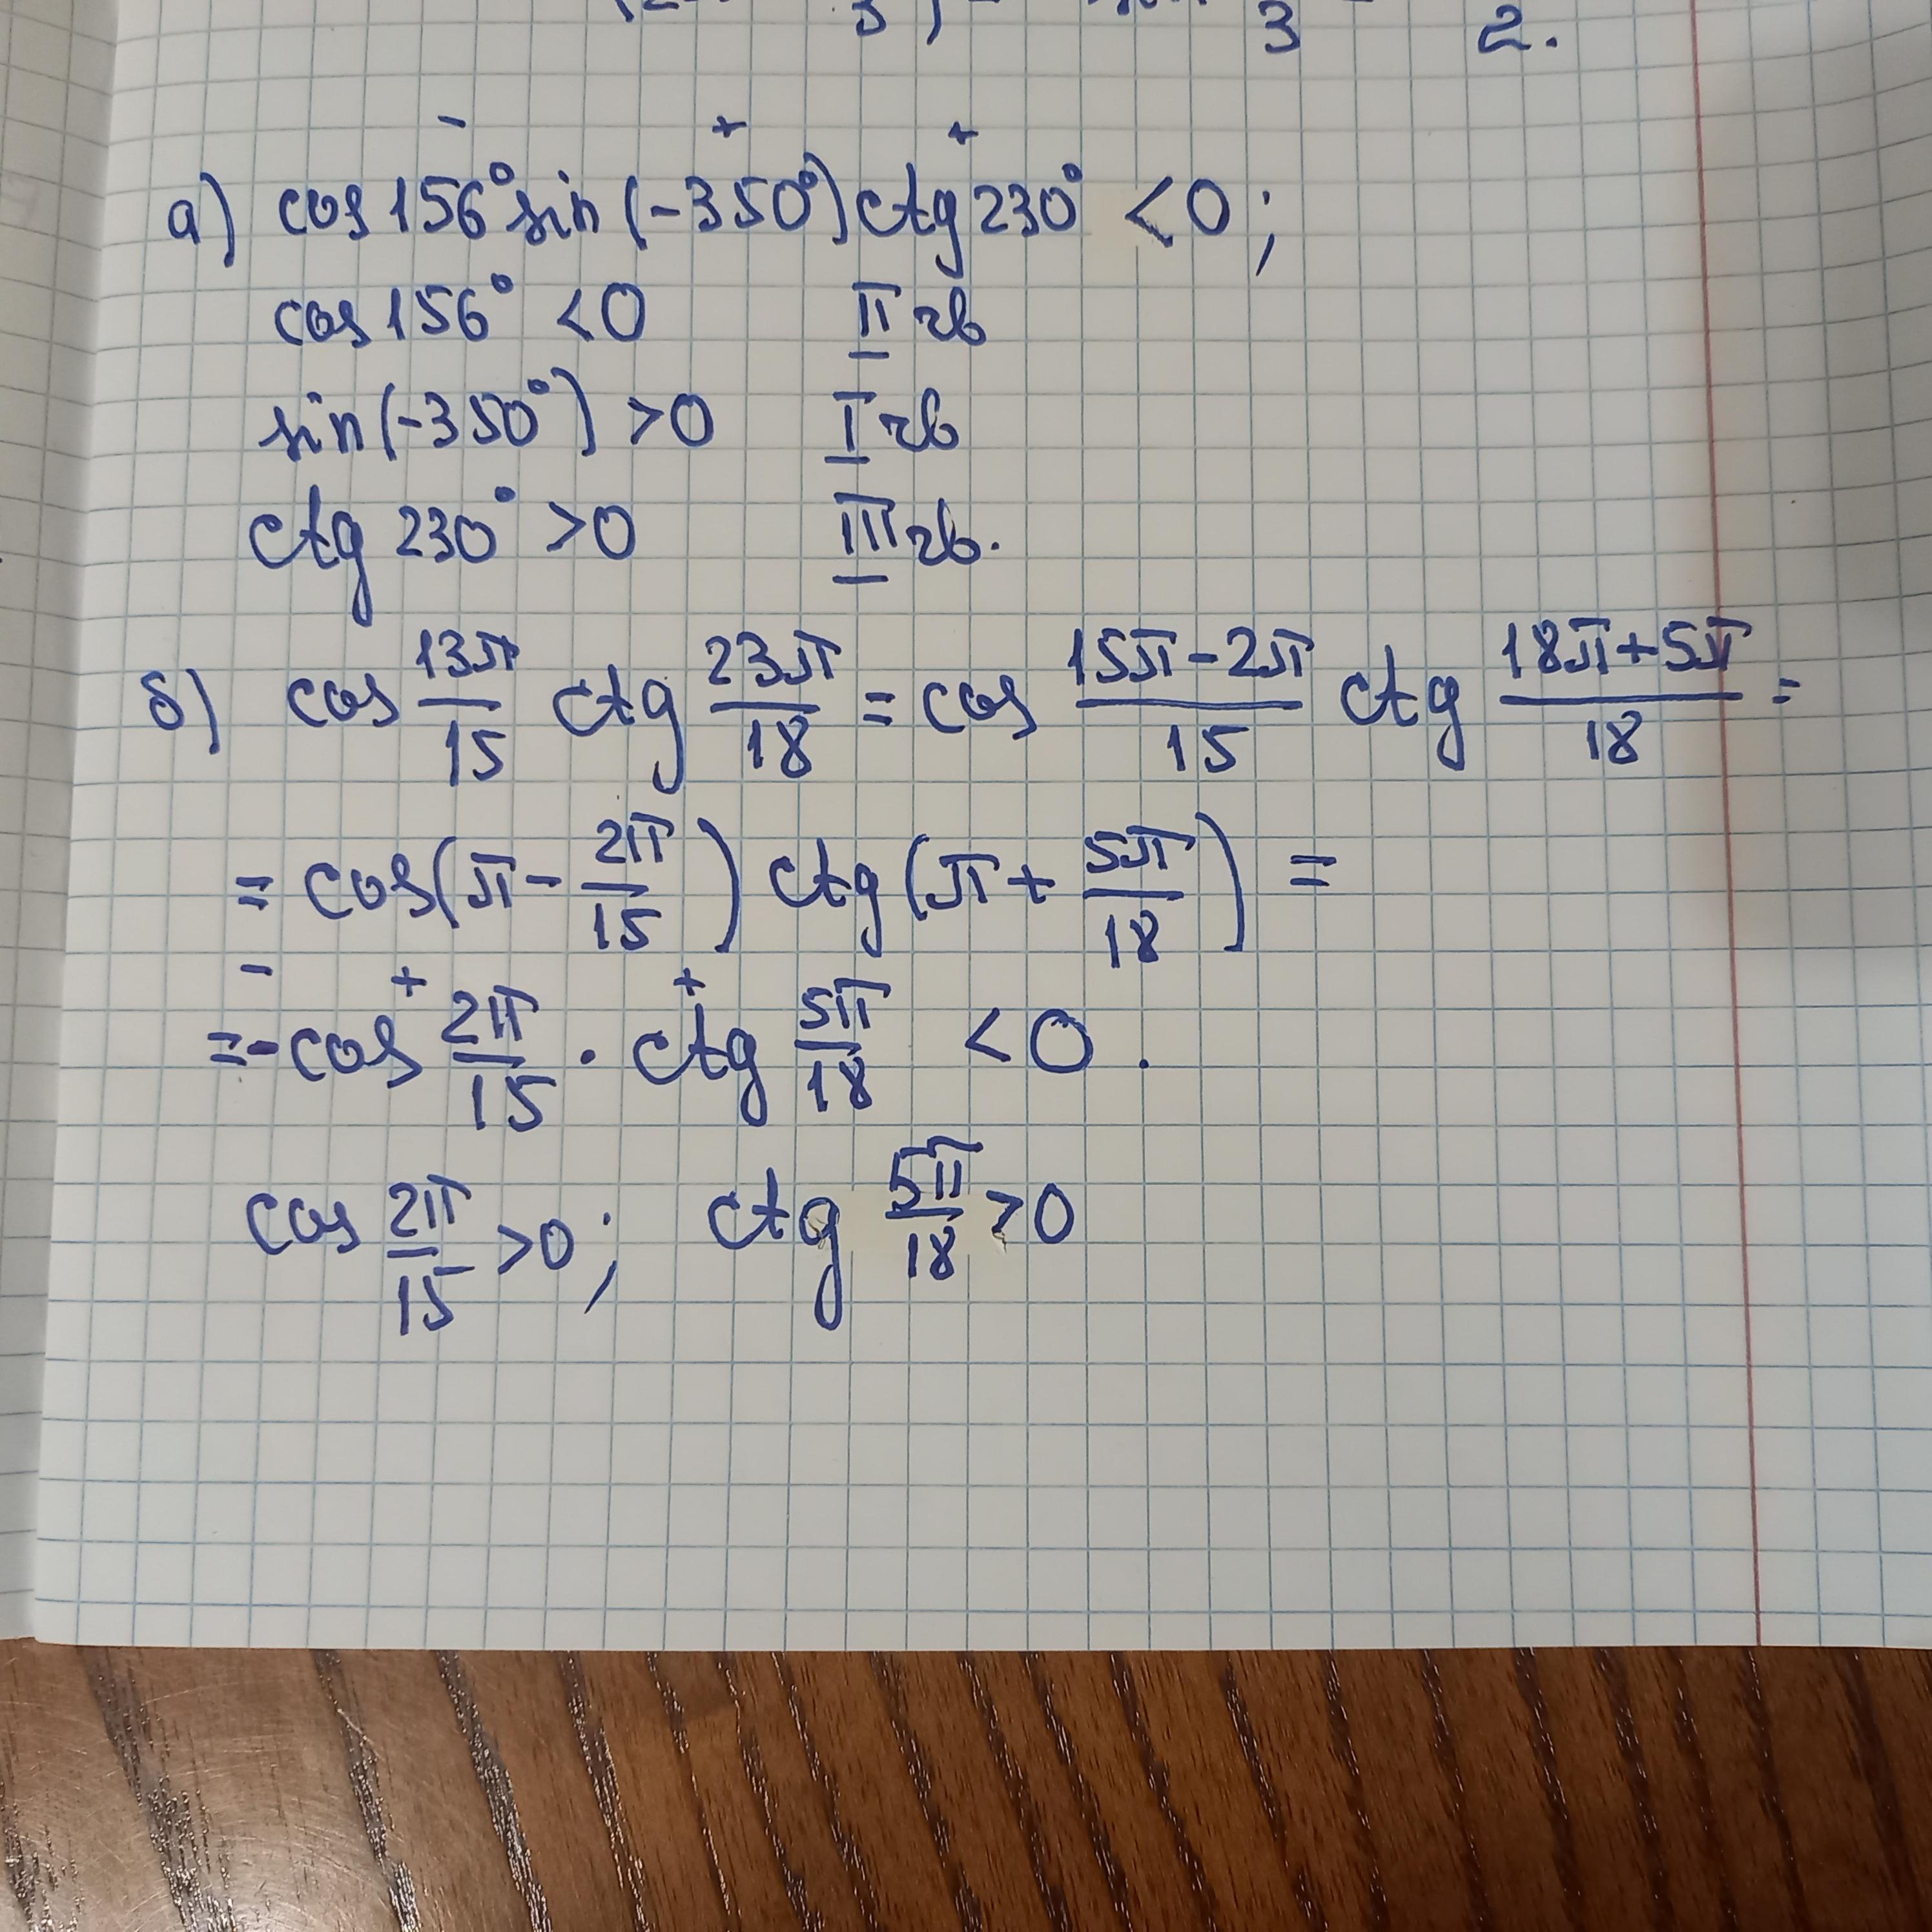 3 ) 3 2.
- + +
а) cos 156° sin (-350°) ctg 230° < 0;
cos 156° < 0 II чв
sin (-350°) > 0 I чв
ctg 230° > 0 III чв.
б) cos 13π/15 ctg 23π/18 = cos (15π-2π)/15 ctg (18π+5π)/18 =
= cos(π - 2π/15) ctg (π + 5π/18) =
- + +
= - cos 2π/15 · ctg 5π/18 < 0.
cos 2π/15 > 0; ctg 5π/18 > 0